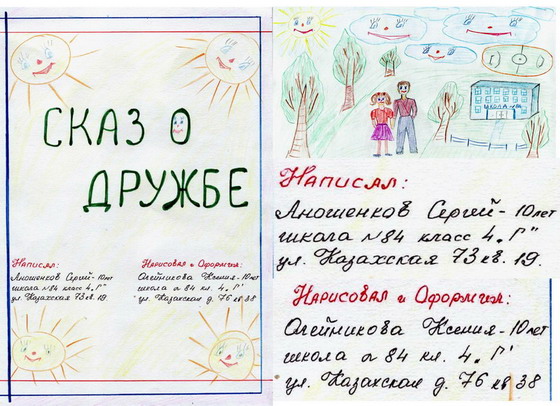 СКАЗ О
ДРУЖБЕ
Написал:
Аношенков Сергей - 10 лет
школа №84 класс 4 „Г"
ул. Казахская 73 кв. 19.
Нарисовал и Оформил:
Олейникова Ксения - 10 лет
школа № 84 кл. 4 „Г"
ул. Казахская д. 76 кв 38
ШКОЛА №84
Написал:
Аношенков Сергей - 10 лет
школа №84 класс 4 „Г"
ул. Казахская 73 кв. 19.
Нарисовал и Оформил:
Олейникова Ксения - 10 лет
школа № 84 кл. 4 „Г"
ул. Казахская д. 76 кв 38